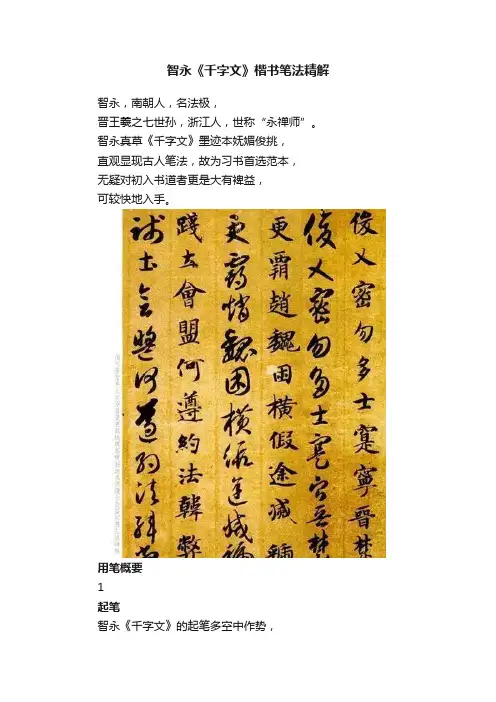 智永《千字文》楷书笔法精解
智永，南朝人，名法极，
晋王羲之七世孙，浙江人，世称“永禅师”。
智永真草《千字文》墨迹本妩媚俊挑，
直观显现古人笔法，故为习书首选范本，
无疑对初入书道者更是大有裨益，
可较快地入手。
俊乂密勿多士寔寧晉楚
俊乂密勿多士寔寧晉楚
更霸趙魏困橫假途滅虢
更霸趙魏困橫假途滅虢
踐土會盟何遵約法韓弊
踐土會盟何遵約法韓弊
用笔概要
1
起笔
智永《千字文》的起笔多空中作势，